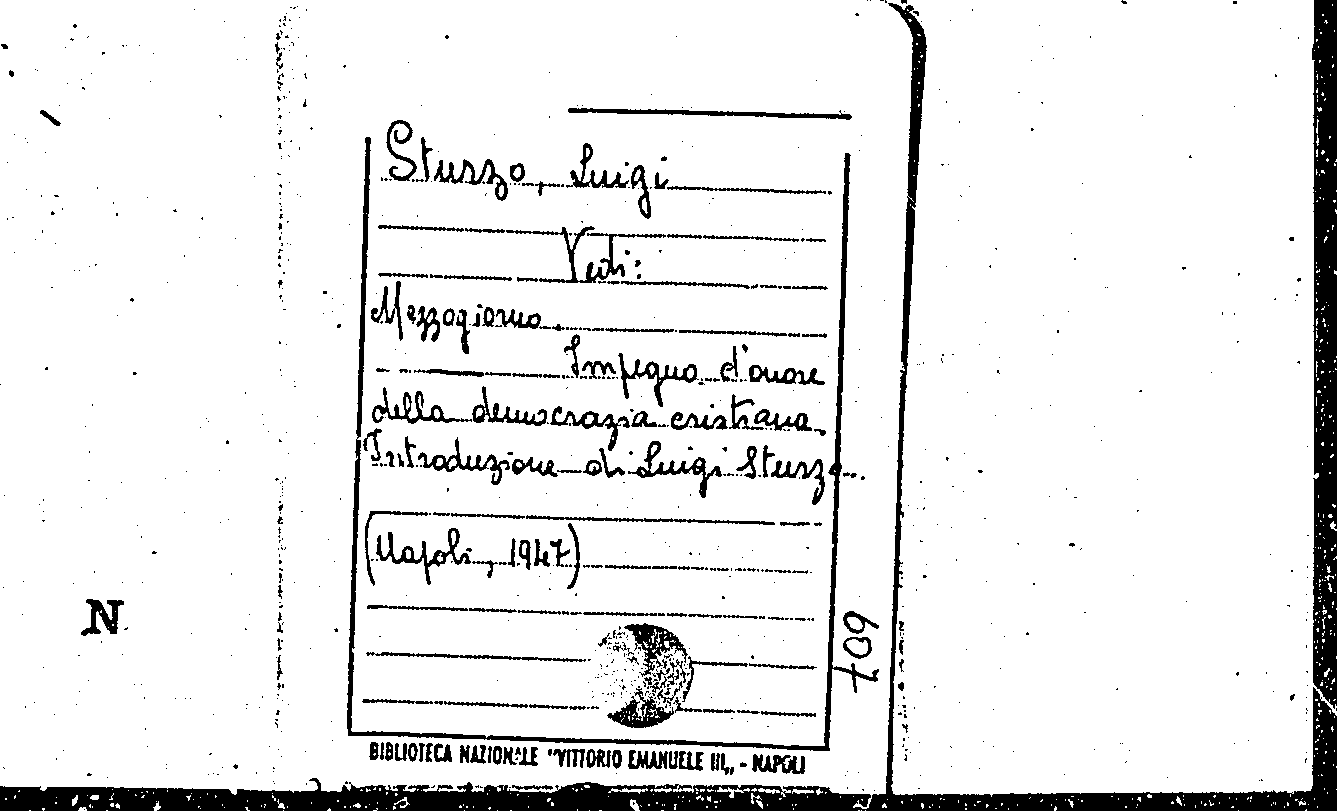 Sturzo, Luigi
Vedi:
Mezzogiorno.
Impegno d'onore
della democrazia cristiana.
Introduzione di Luigi Sturzo...
(Napoli, 1947)
607
N
BIBLIOTECA NAZIONALE "VITTORIO EMANUELE III„ - NAPOLI